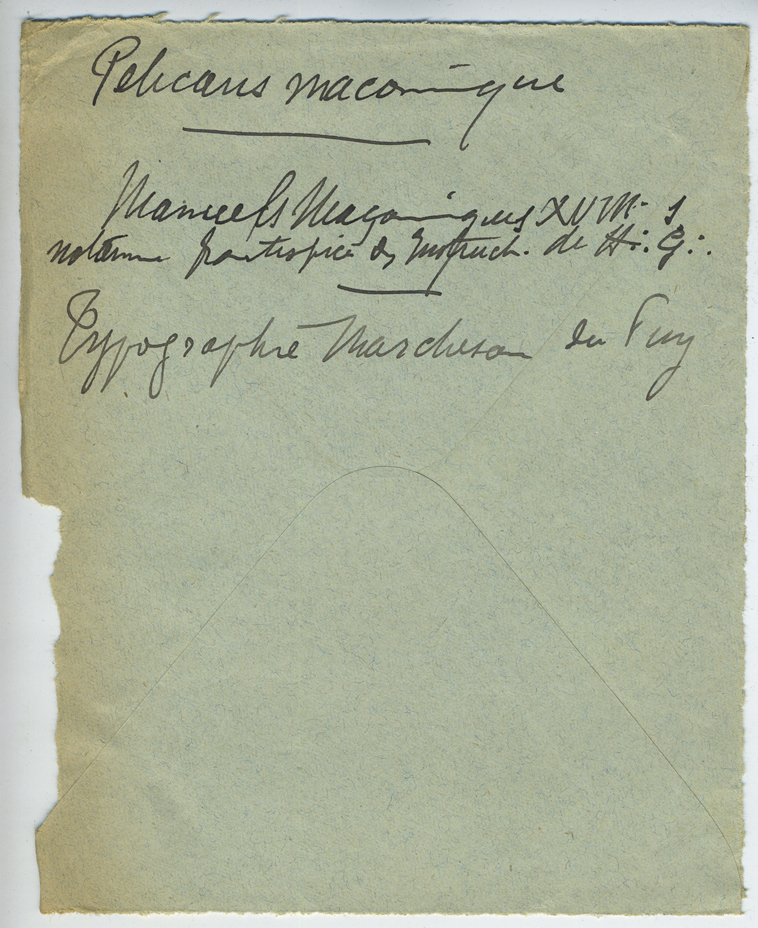 Pelicans maconnique
Manuels Maçonniques XVIII s
notamm frontispice des Instruct. de H∴ G∴
Typographie Marcheson du Puy